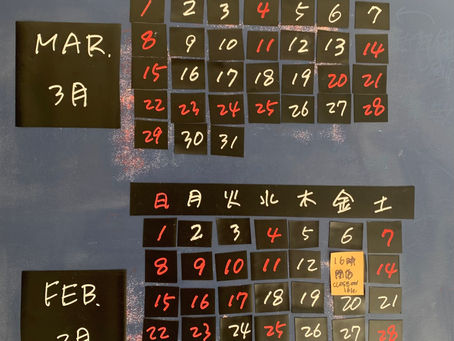 MAR.
3月
1 2 3 4 5 6 7
8 9 10 11 12 13 14
15 16 17 18 19 20 21
22 23 24 25 26 27 28
29 30 31
日 月 火 水 木 金 土
FEB.
2月
1 2 3 4 5 6 7
8 9 10 11 12 14
16時
閉店
15 16 17 18 19 20 21
22 23 24 25 26 27 28